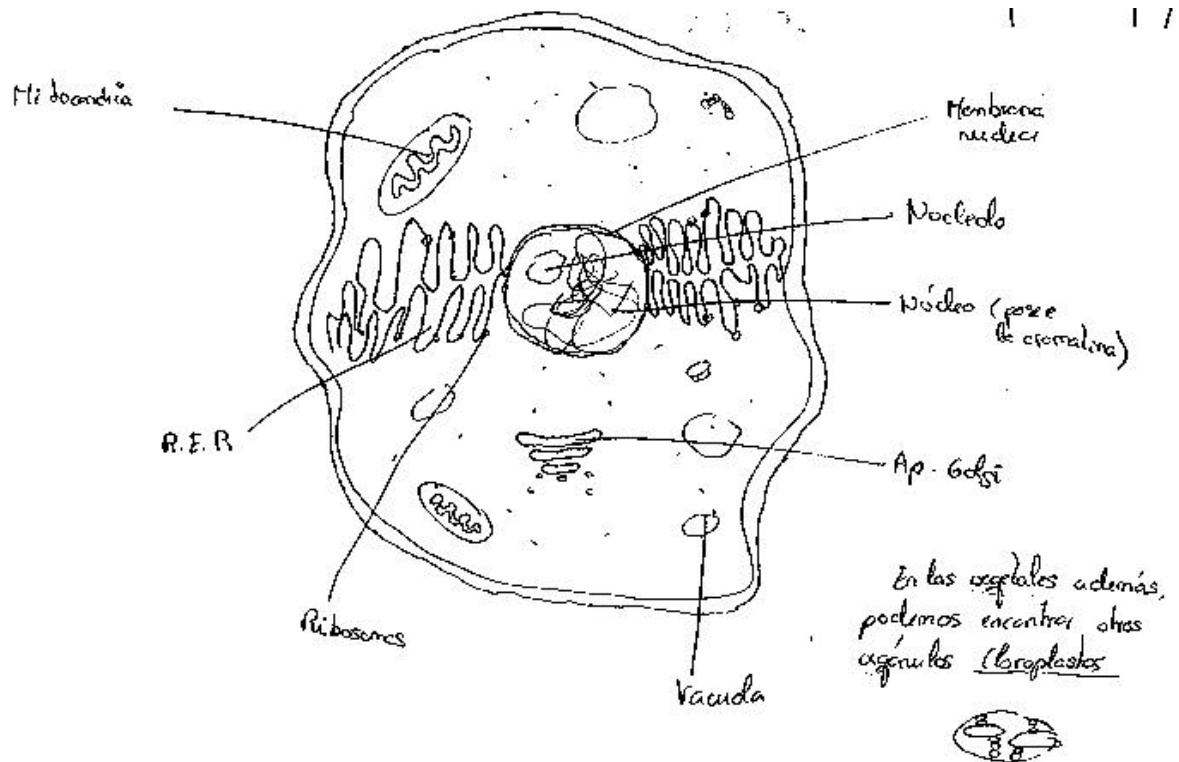 Mitocondria
Membrana
nuclear
Nucleolo
Núcleo (posee
la cromatina)
R.E.R
Ap. Golgi
Ribosomas
Vacuola
En las vegetales además,
podemos encontrar otros
orgánulos Cloroplastos